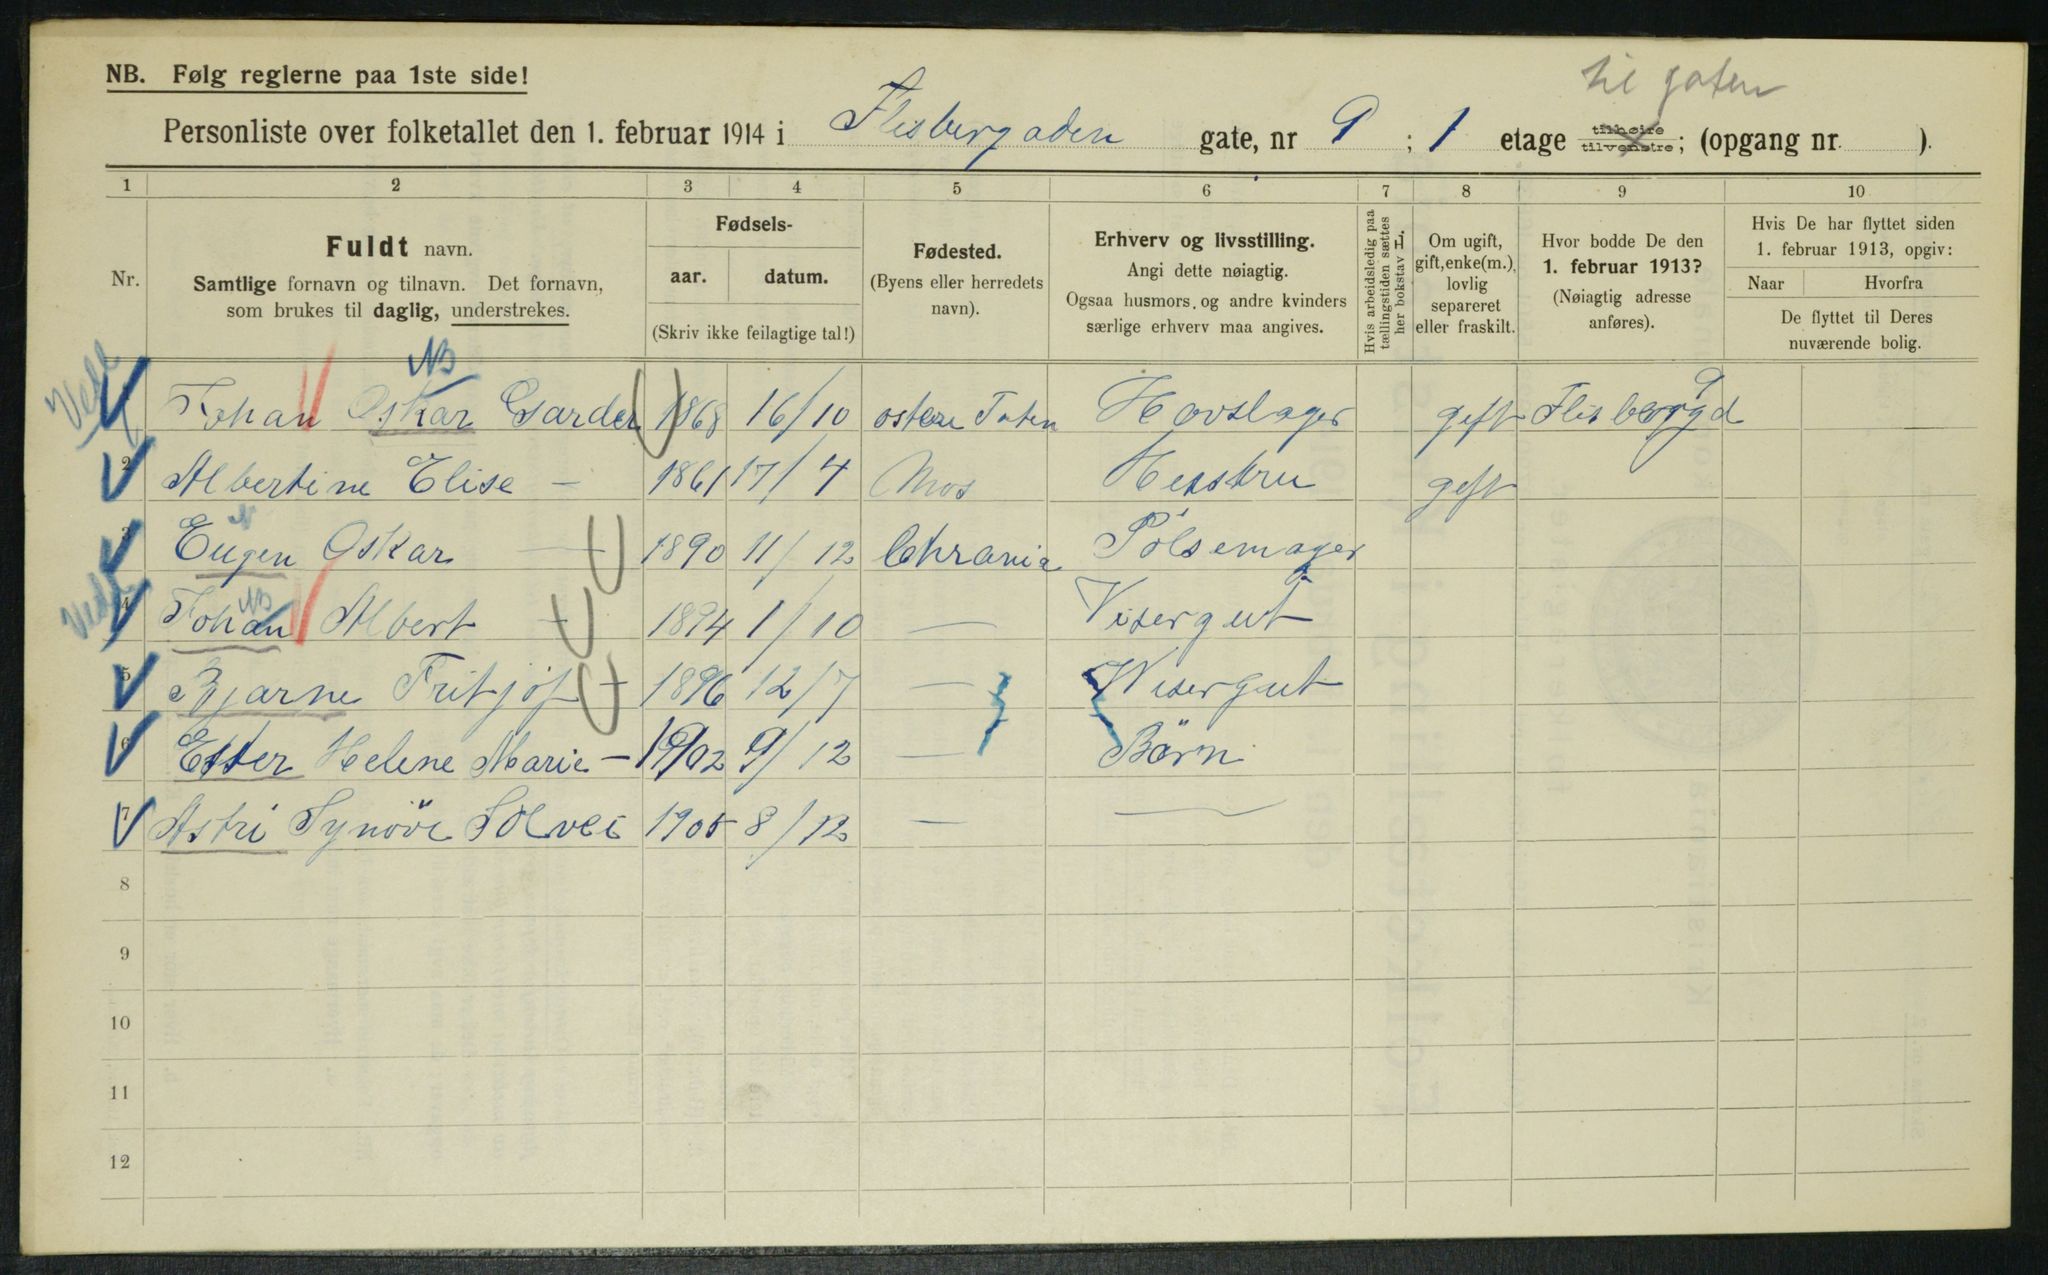 til gaten
NB. Følg reglerne paa 1ste side!
Personliste over folketallet den 1. februar 1914 i Flisbergaden gate, nr 9 ; 1 etage tilhøire tilvenstre; (opgang nr. ).
1 2 3 4 5 6 7 8 9 10
Nr.
Fuldt navn.
Samtlige fornavn og tilnavn. Det fornavn,
som brukes til daglig, understrekes.
Fødsels-
aar. datum.
(Skriv ikke feilagtige tal!)
Fødested.
(Byens eller herredets
navn).
Erhverv og livsstilling.
Angi dette nøiagtig.
Ogsaa husmors og andre kvinders
særlige erhverv maa angives.
Hvis arbeidsledig paa
tællingstiden sættes
her bokstav H.
Om ugift,
gift, enke(m.),
lovlig
separeret
eller fraskilt.
Hvor bodde De den
1. februar 1913?
(Nøiagtig adresse
anføres).
Hvis De har flyttet siden
1. februar 1913, opgiv:
Naar Hvorfra
De flyttet til Deres
nuværende bolig.
NB
Johan Oskar Garder 1868 16/10 ostere Toten Hovslager geft Flisberggd 9
2 Albertine Elise — 1861 17/4 Mos Husstru geft
3 Eugen Oskar — 1890 11/12 Chrania Pölsemager
NB
4 Johan Albert — 1894 1/10 — Visergut
5 Bjarne Fritjof — 1896 12/7 — Visergut
6 Ester Helene Marie — 1902 9/12 — Börn
7 Astri Synöve Solvei 1905 8/12 — —
8
9
10
11
12